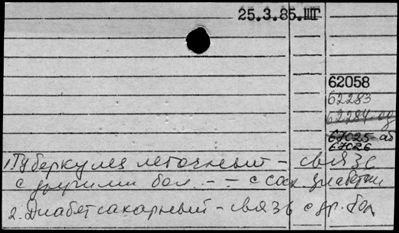 25.3.85.ШГ
62058
62283
62284-од
67025-аб
67026
1 Туберкулез легочный - связь
с другими бол. - - с сах. диабетом
2. Диабет сахарный - связь с др. бол